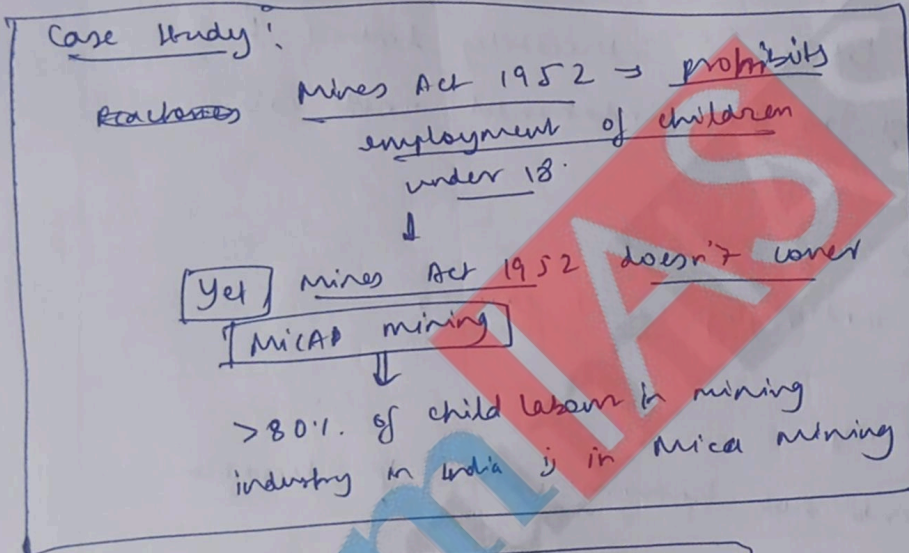 Case Study:
Mines Act 1952 → prohibits
employment of children
under 18.
↓
Yet Mines Act 1952 doesn't cover
MICAD mining
⇓
>80%. of child labour in mining
industry in India is in Mica mining
IAS